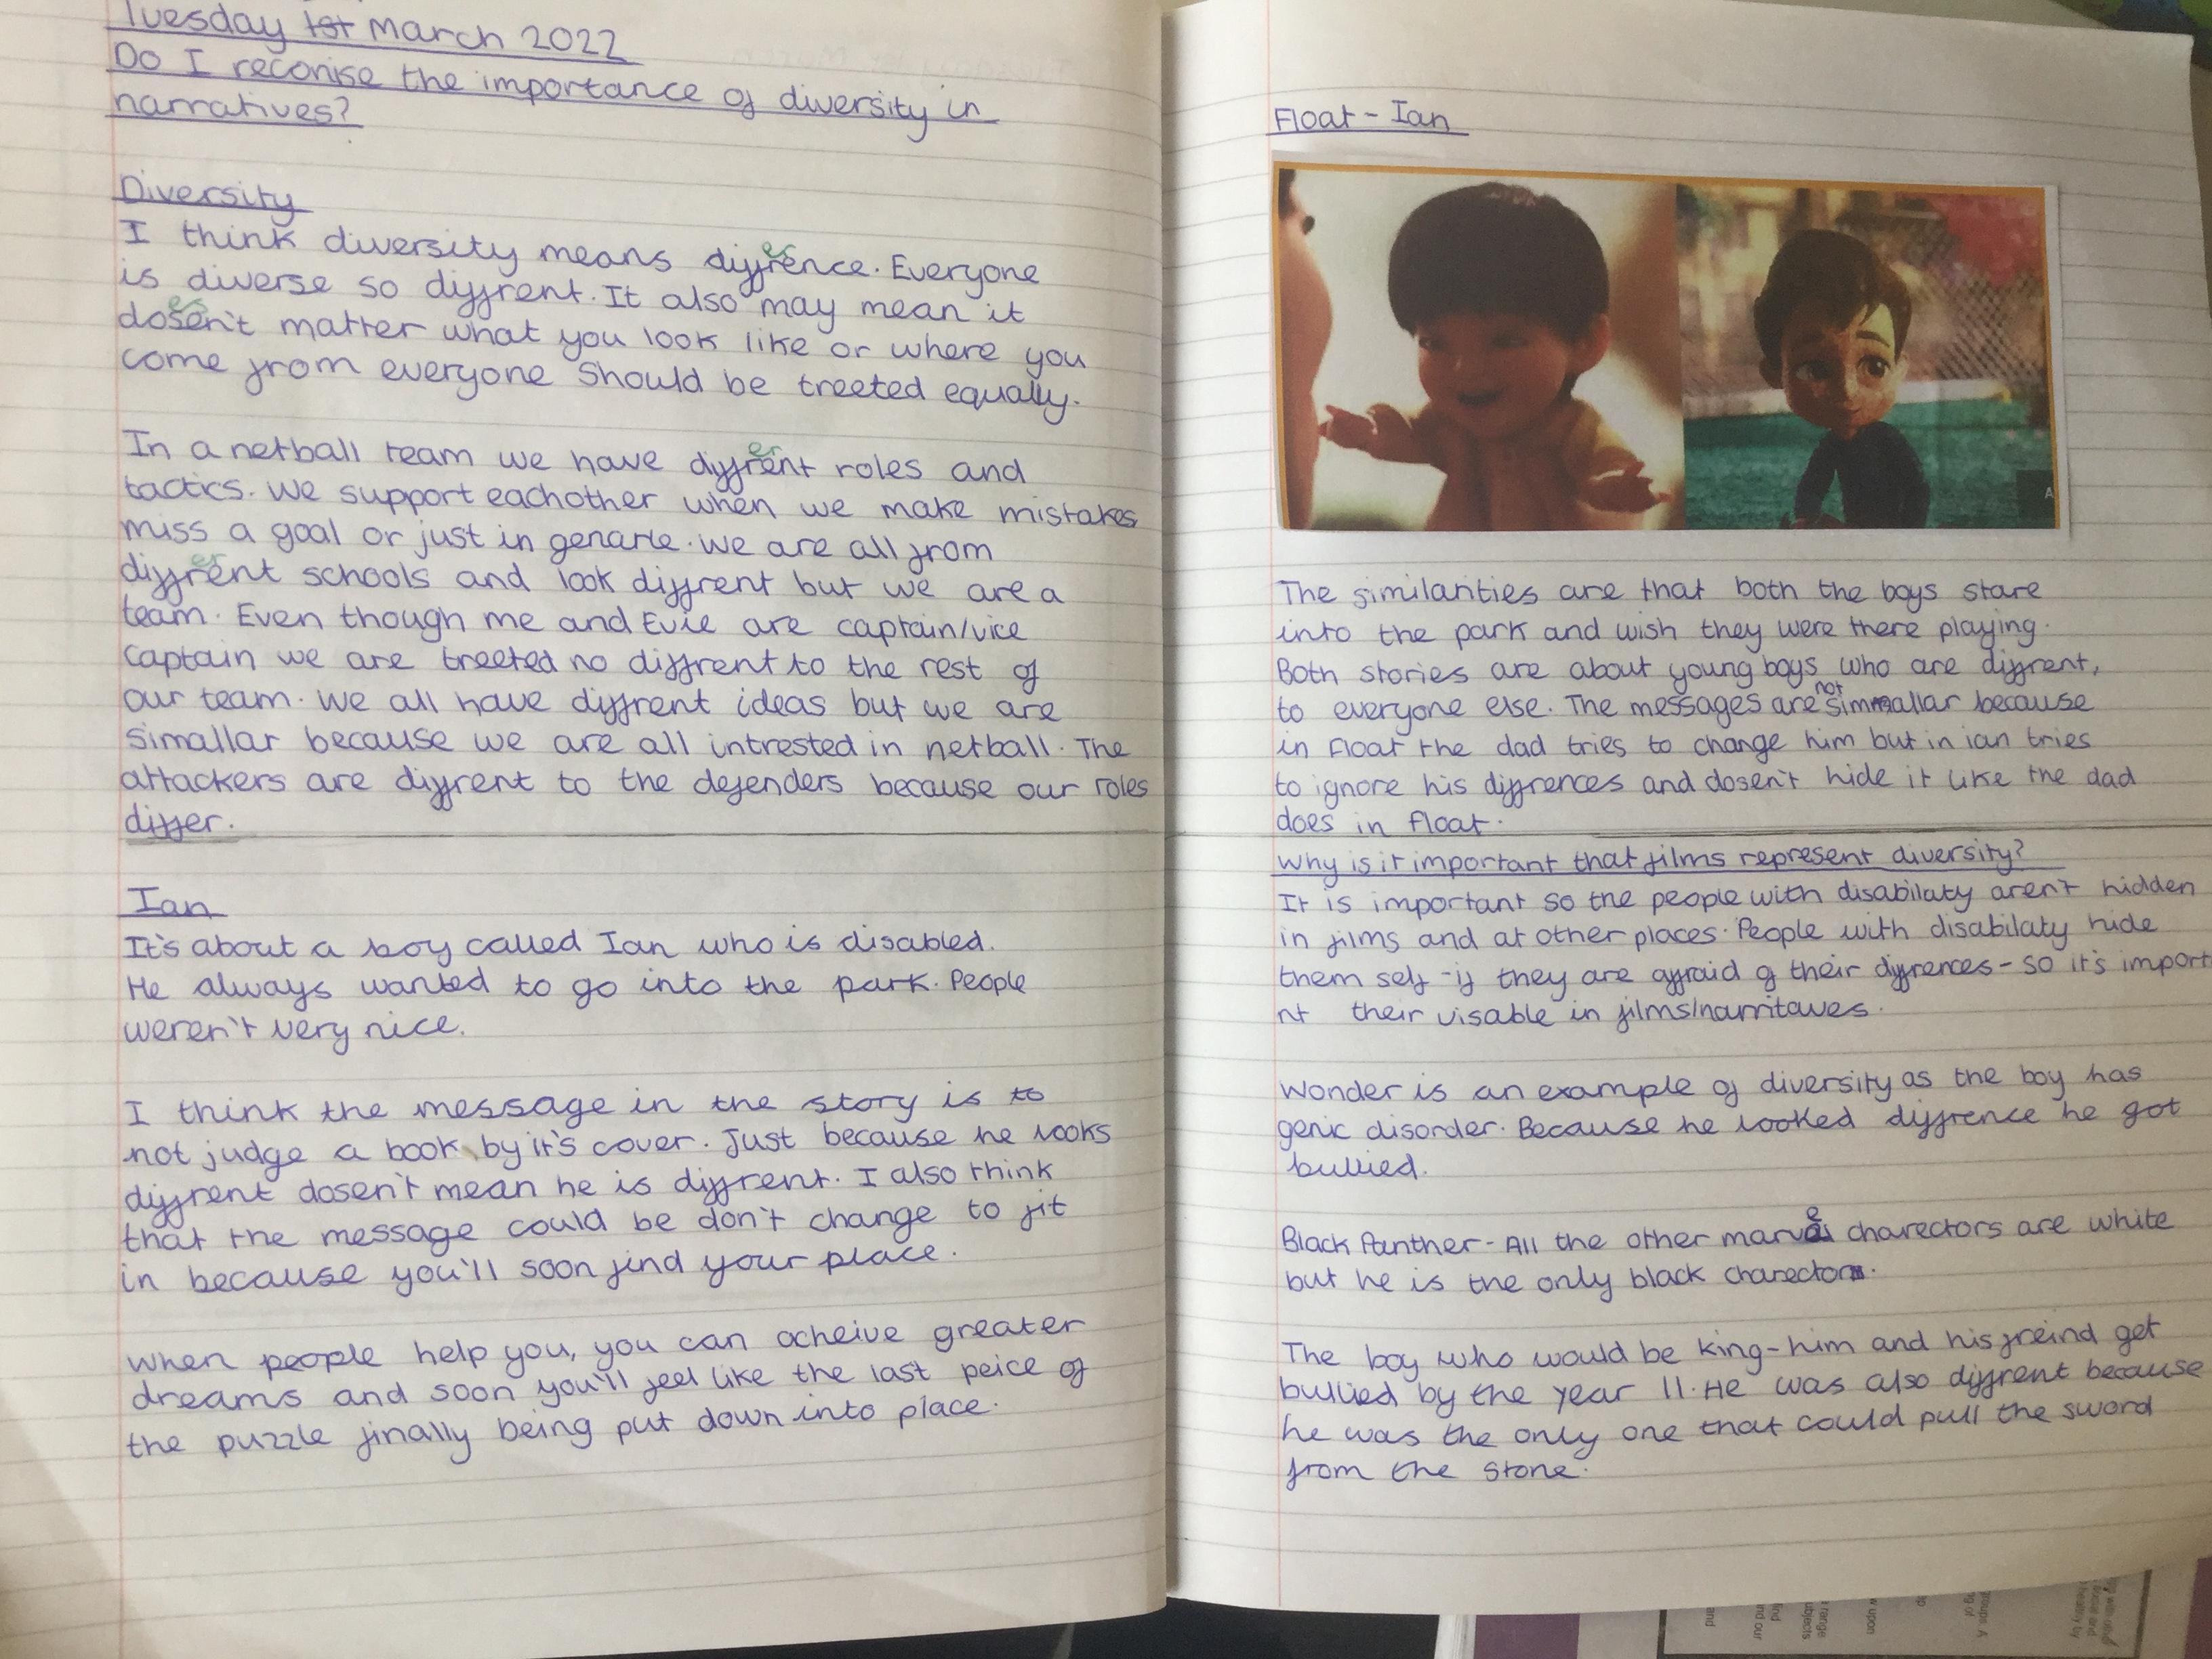 Tuesday 1st March 2022
Do I reconise the importance of diversity in
narratives?
Diversity
I think diversity means diffrence. Everyone
is diverse so diffrent. It also may mean it
dosen't matter what you look like or where you
come from everyone Should be treeted equally.
In a netball team we have diffrent roles and
tactics. We support eachother when we make mistakes
miss a goal or just in genarle. We are all from
diffrent schools and look diffrent but we are a
team. Even though me and Evie are captain/vice
captain we are treeted no diffrent to the rest of
our team. We all have diffrent ideas but we are
simallar because we are all intrested in netball. The
attackers are diffrent to the defenders because our roles
differ.
Ian
It's about a boy called Ian who is disabled.
He always wanted to go into the park. People
weren't very nice.
I think the message in the story is to
not judge a book by it's cover. Just because he looks
diffrent dosen't mean he is diffrent. I also think
that the message could be don't change to fit
in because you'll soon find your place.
When people help you, you can acheive greater
dreams and soon you'll feel like the last peice of
the puzzle finally being put down into place.
Float - Ian
The similarities are that both the boys stare
into the park and wish they were there playing.
Both stories are about young boys who are diffrent,
to everyone else. The messages are not simmallar because
in Float the dad tries to change him but in ian tries
to ignore his diffrences and dosen't hide it like the dad
does in Float.
Why is it important that films represent diversity?
It is important so the people with disabilaty aren't hidden
in films and at other places. People with disabilaty hide
them self - if they are affraid of their diffrences - so it's import
nt their visable in films/narritaves.
Wonder is an example of diversity as the boy has
genic disorder. Because he looked diffrence he got
bullied.
Black Panther - All the other marvel charectors are white
but he is the only black charector.
The boy who would be king - him and his freind get
bullied by the year 11. He was also diffrent because
he was the only one that could pull the sword
from the stone.